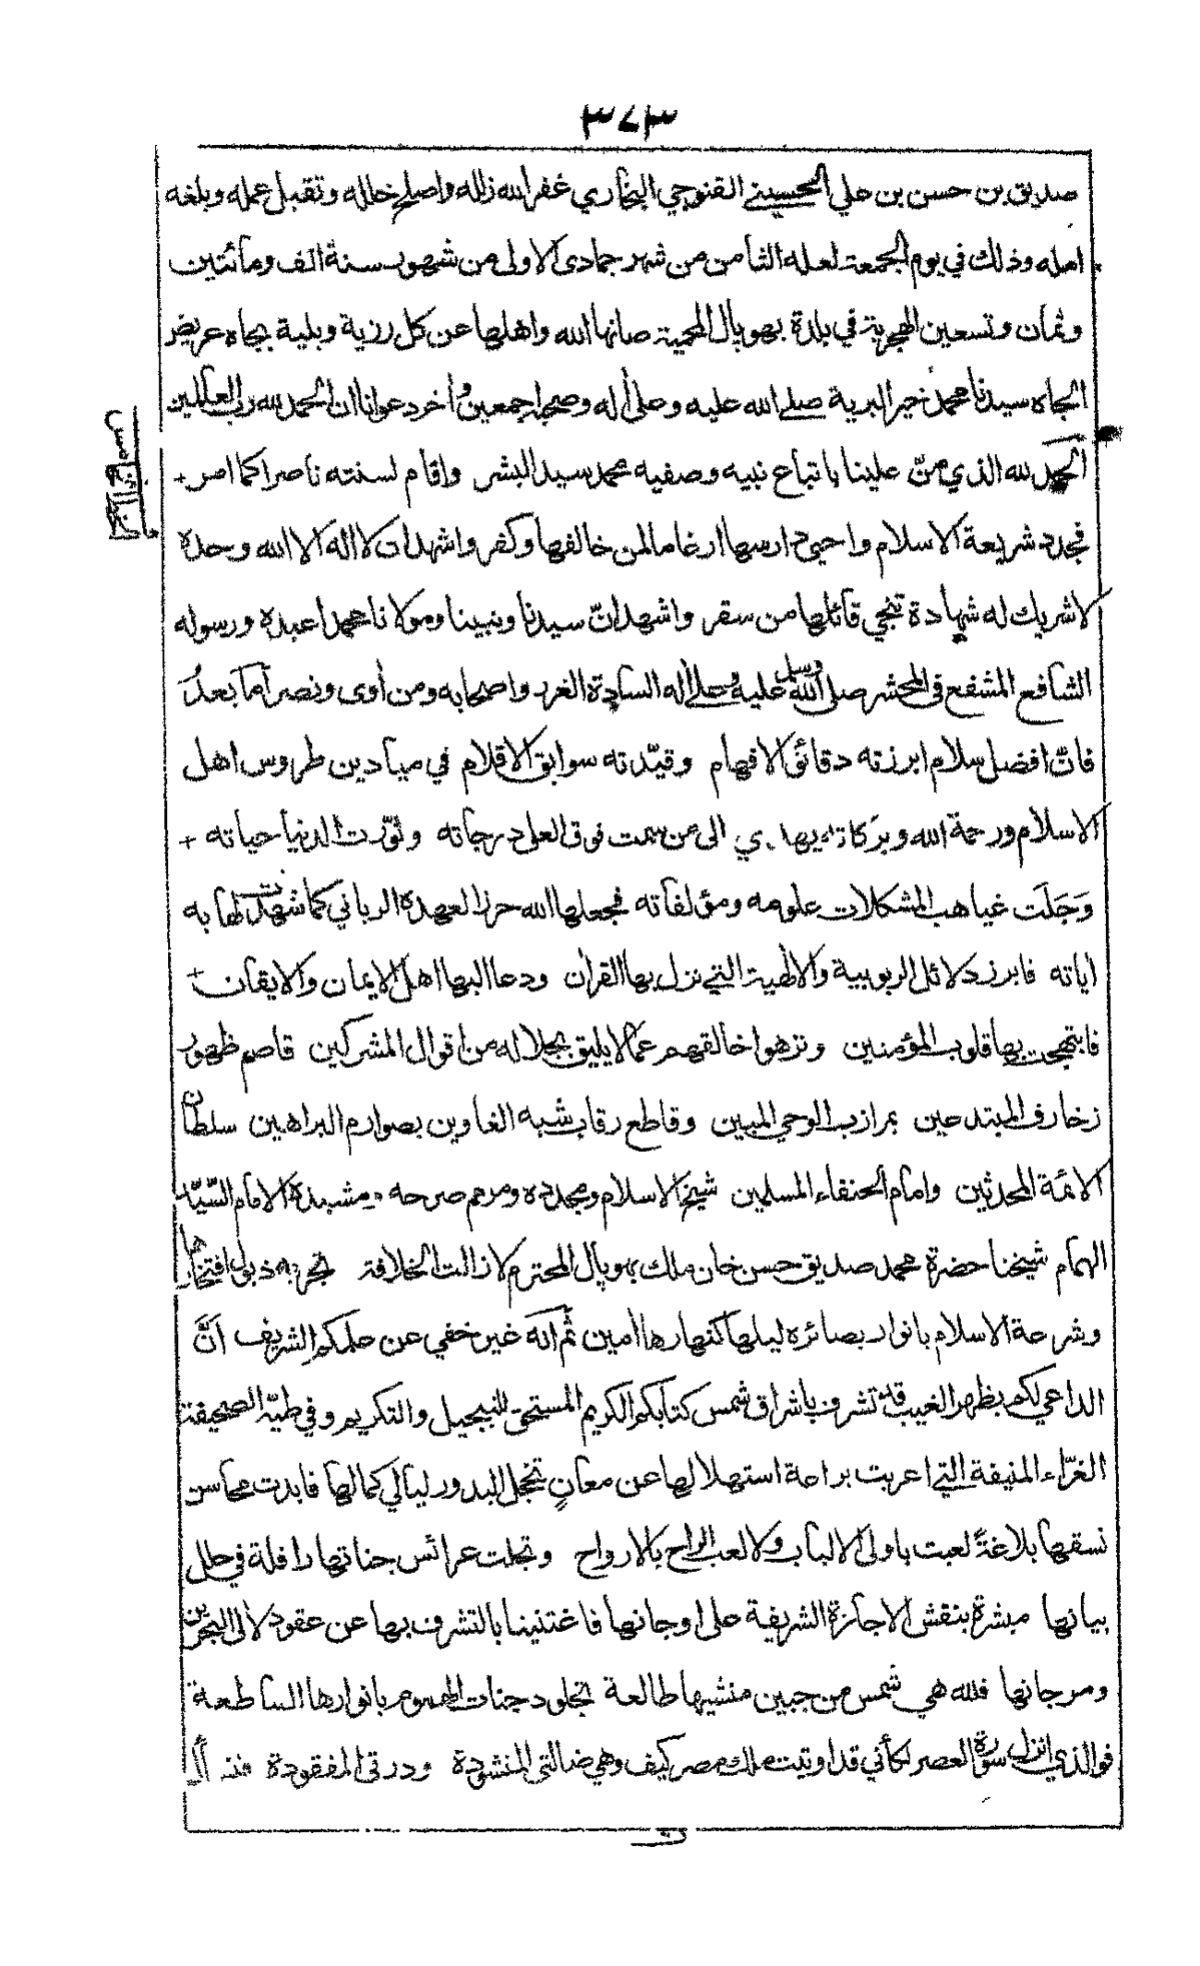 ٣٧٣
صديق بن حسن بن علي الحسيني القنوجي البخاري غفر الله زلله واصلح خلله وتقبل عمله وبلغه
امله وذلك في يوم الجمعة لعله الثامن من شهر جمادى الاولى من شهور سنة الف ومائتين
وثمان وتسعين الهجرية في بلدة بهوپال المحمية صانها الله واهلها عن كل رزية وبلية بجاه عريض
الجاه سيدنا محمد خير البرية صلى الله عليه وعلى اله وصحبه اجمعين واخر دعوانا ان الحمد لله رب العلمين
الحمد لله الذي منّ علينا باتباع نبيه وصفيه محمد سيد البشر واقام لسنته ناصرا كما امر +
فجدد شريعة الاسلام واحيى دارسها ارغاما لمن خالفها وكفر واشهد ان لا اله الا الله وحده
لا شريك له شهادة تنجي قائلها من سقر واشهد انّ سيدنا ونبينا ومولانا محمدا عبده ورسوله
الشافع المشفع فى المحشر صلى الله عليه وسلم وعلى اله السادة الغرر واصحابه ومن أوى ونصر أما بعدُ
فانّ افضل سلام ابرزته دقائق الافهام وقيّدته سوابق الاقلام في ميادين طروس اهل
الاسلام ورحمة الله وبركاته الى من سمت فوق العلى درجاته ونوّرت الدنيا حياته +
وَجَلَت غياهب المشكلات علومه ومؤلفاته فجعلها الله حرزا لعهده الرباني كما شهدت لها به
اياته فابرز دلائل الربوبية والالهية التي نزل بها القران ودعا اليها اهل الايمان والايقان +
فابتهجت بها قلوب المؤمنين ونزهوا خالقهم عما لا يليق بجلاله من اقوال المشركين قاصم ظهور
زخارف المبتدعين بمرازب الوحي المبين وقاطع رقاب شبه الغاوين بصوارم البراهين سلطان
الائمة المحدثين وامام الحنفاء المسلمين شيخ الاسلام ومجدده ومرمم صرحه ومشيده الامام السّيّد
الهمام شيخنا حضرة محمد صديق حسن خان ملك بهوپال المحترم لا زالت الخلافة تجر به ذيول افتخارها
وشرعة الاسلام بانوار بصائره ليلها كنهارها امين ثم انه غير خفي عن علمكم الشريف انَّ
الداعي لكم بظهر الغيب قد تشرف باشراق شمس كتابكم الكريم المستحق للتبجيل والتكريم وفي طيّه الصحيفة
الغرّاء المنيفة التي اعربت براعة استهلالها عن معانٍ تخجل البدور ليالي كمالها فابدت محاسن
نسقها بلاغةً لعبت باولى الالباب ولا لعب الراح بالارواح وتجلت عرائس جناتها رافلة في حلل
بيانها مبشرة بنقش الاجازة الشريفة على اوجانها فاغتنينا بالتشرف بها عن عقود لآلى البحرين
ومرجانها فلله هي شمس من جبين منشيها طالعة تجلو دجنات الهموم بانوارها الساطعة
فوالذي انزل سورة العصر لكأني قد اوتيت ملك مصر كيف وهي ضالتي المنشودة ودرتى المفقودة